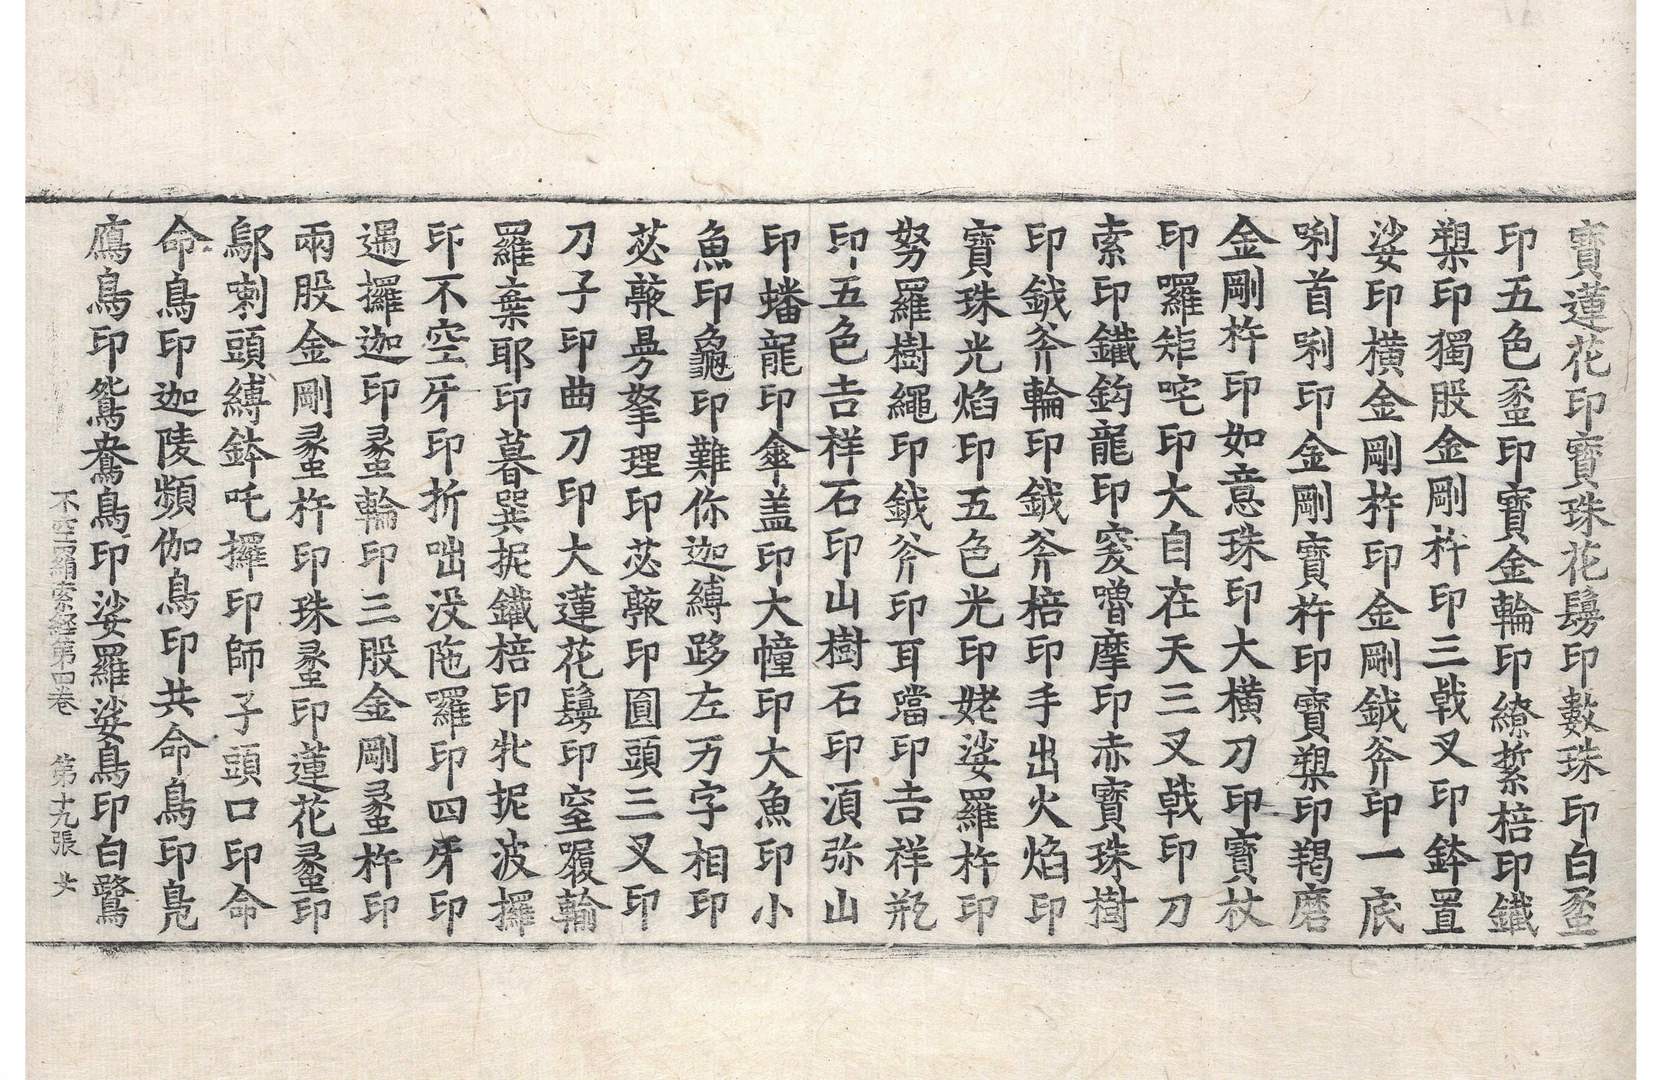 寶蓮花印寶珠花鬘印數珠印白螺
印五色螺印寶金輪印繚䋈棓印鐵
槊印獨股金剛杵印三戟叉印鉢置
娑印橫金剛杵印金剛鉞斧印一底
唎首唎印金剛寶杵印寶槊印羯磨
金剛杵印如意珠印大橫刀印寶杖
印囉䂒咤印大自在天三叉戟印刀
索印鐵鈎龍印窣嚕摩印赤寶珠樹
印鉞斧輪印鉞斧棓印手出火焰印
寶珠光焰印五色光印姥娑羅杵印
努羅樹繩印鉞斧印耳璫印吉祥瓶
印五色吉祥石印山樹石印湏弥山
印蟠龍印傘盖印大幢印大魚印小
魚印龜印難你迦縛跢左万字相印
苾㮏曼拏理印苾㮏印圓頭三叉印
刀子印曲刀印大蓮花鬘印窒履輪
羅棄耶印暮巽抳鐵棓印牝抳波攞
印不空牙印折咄没陁囉印四牙印
遏攞迦印螺輪印三股金剛螺杵印
兩股金剛螺杵印珠螺印蓮花螺印
鄔喇頭縛鉢吒攞印師子頭口印命
命鳥印迦陵頻伽鳥印共命鳥印鳧
鴈鳥印鴛鴦鳥印娑羅娑鳥印白鷺
不空羂索經第四卷 第十九張 𠦃